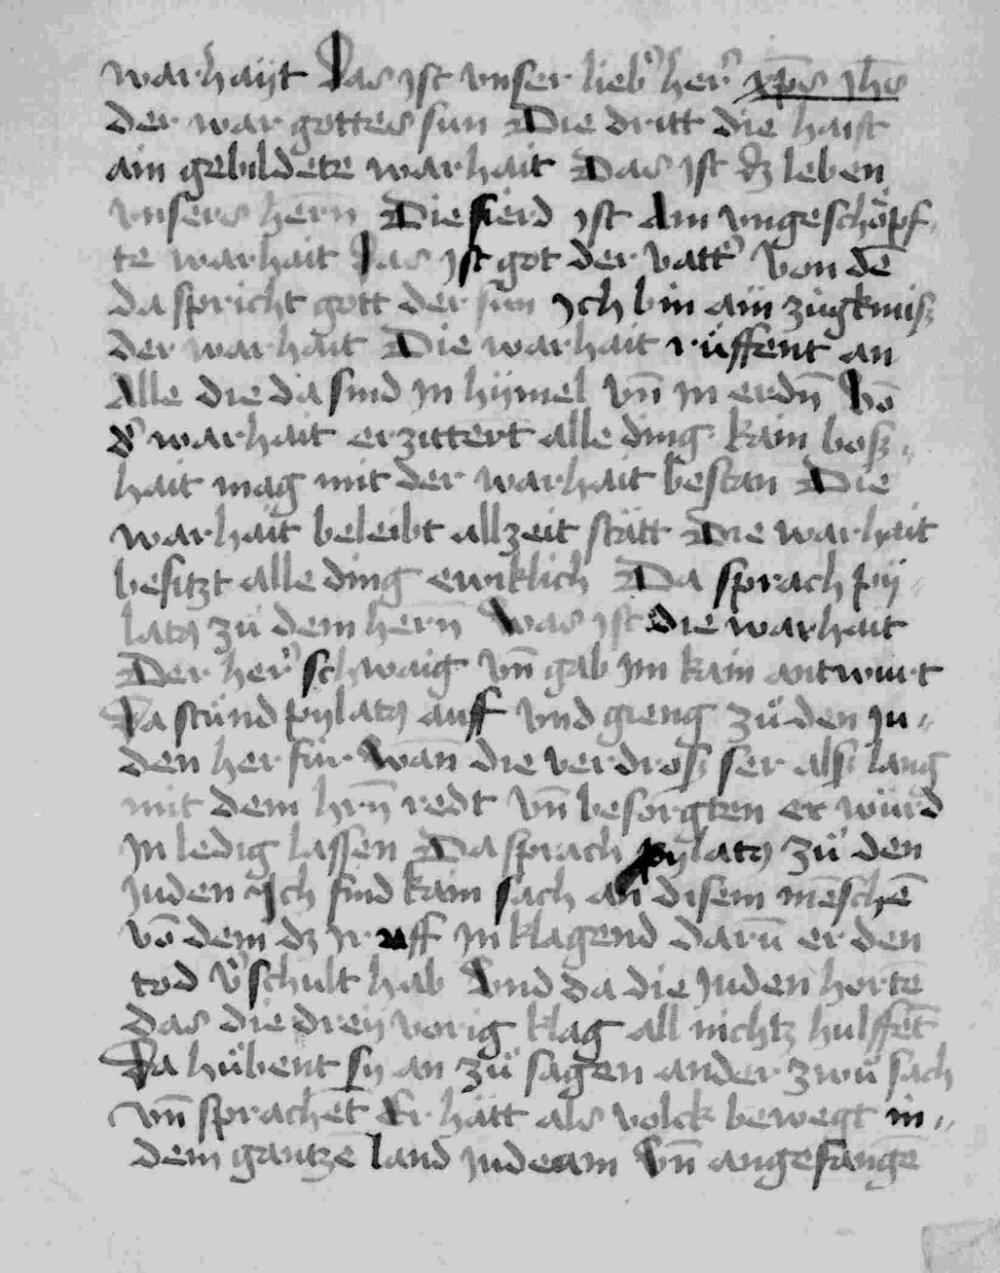 warhayt Das ist vnser lieb͛ her͛ xp̄s ih̄s
der war gottes sun Die dritt die haist
ain gebildete warhait Das ist dz leben
vnsers hern̄ Die fierd ist Am vngeschöpf-
te warhait Das ist got der vatt͛ Von dē
da spricht gott der sun Ich bin ain zügknuß
der warhait Die warhait rüffent an
Alle die da sind in hymel vn̄ in erdn̄ Vō
d͛ warhait erzittert alle ding kain boß-
hait mag mit der warhait bestan Die
warhait beleibt allzeit stätt Die warheit
besitzt alle ding ewiklich Da sprach py-
latꝰ zu̍ dem hern̄ Was ist die warhait
Der her͛ schwaig vn̄ gab im kain antwurt
Da stünd pylatꝰ auff vnd gieng zü den iu-
den her für Wan̄ die verdroß ser als lang
mit dem hrn̄ redt vn̄ besorgten er würd
in ledig lassen Da sprach pylatꝰ zü den
iuden Ich find kain sach an disem mēschē
vō dem dz ir uff in klagend darū er den
tod v͛schult hab Vnd da die iuden hortē
das die drey vorig klag all nichtz hulffēt
Da hübent sy an zü sagen ander zwü sach
vn̄ sprachēt Er hätt als volck bewegt in-
dem gantzē land iudeam vn̄ angefangē